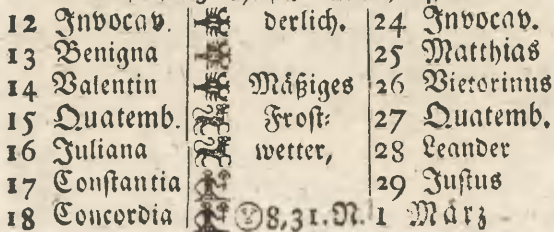 12 Invocav. derlich. 24 Invocav.
13 Benigna 25 Matthias
14 Valentin Mäßiges 26 Victorinus
15 Quatemb. Frost: 27 Quatemb.
16 Juliana wetter, 28 Leander
17 Constantia 29 Justus
18 Concordia 8,31.N. 1 März